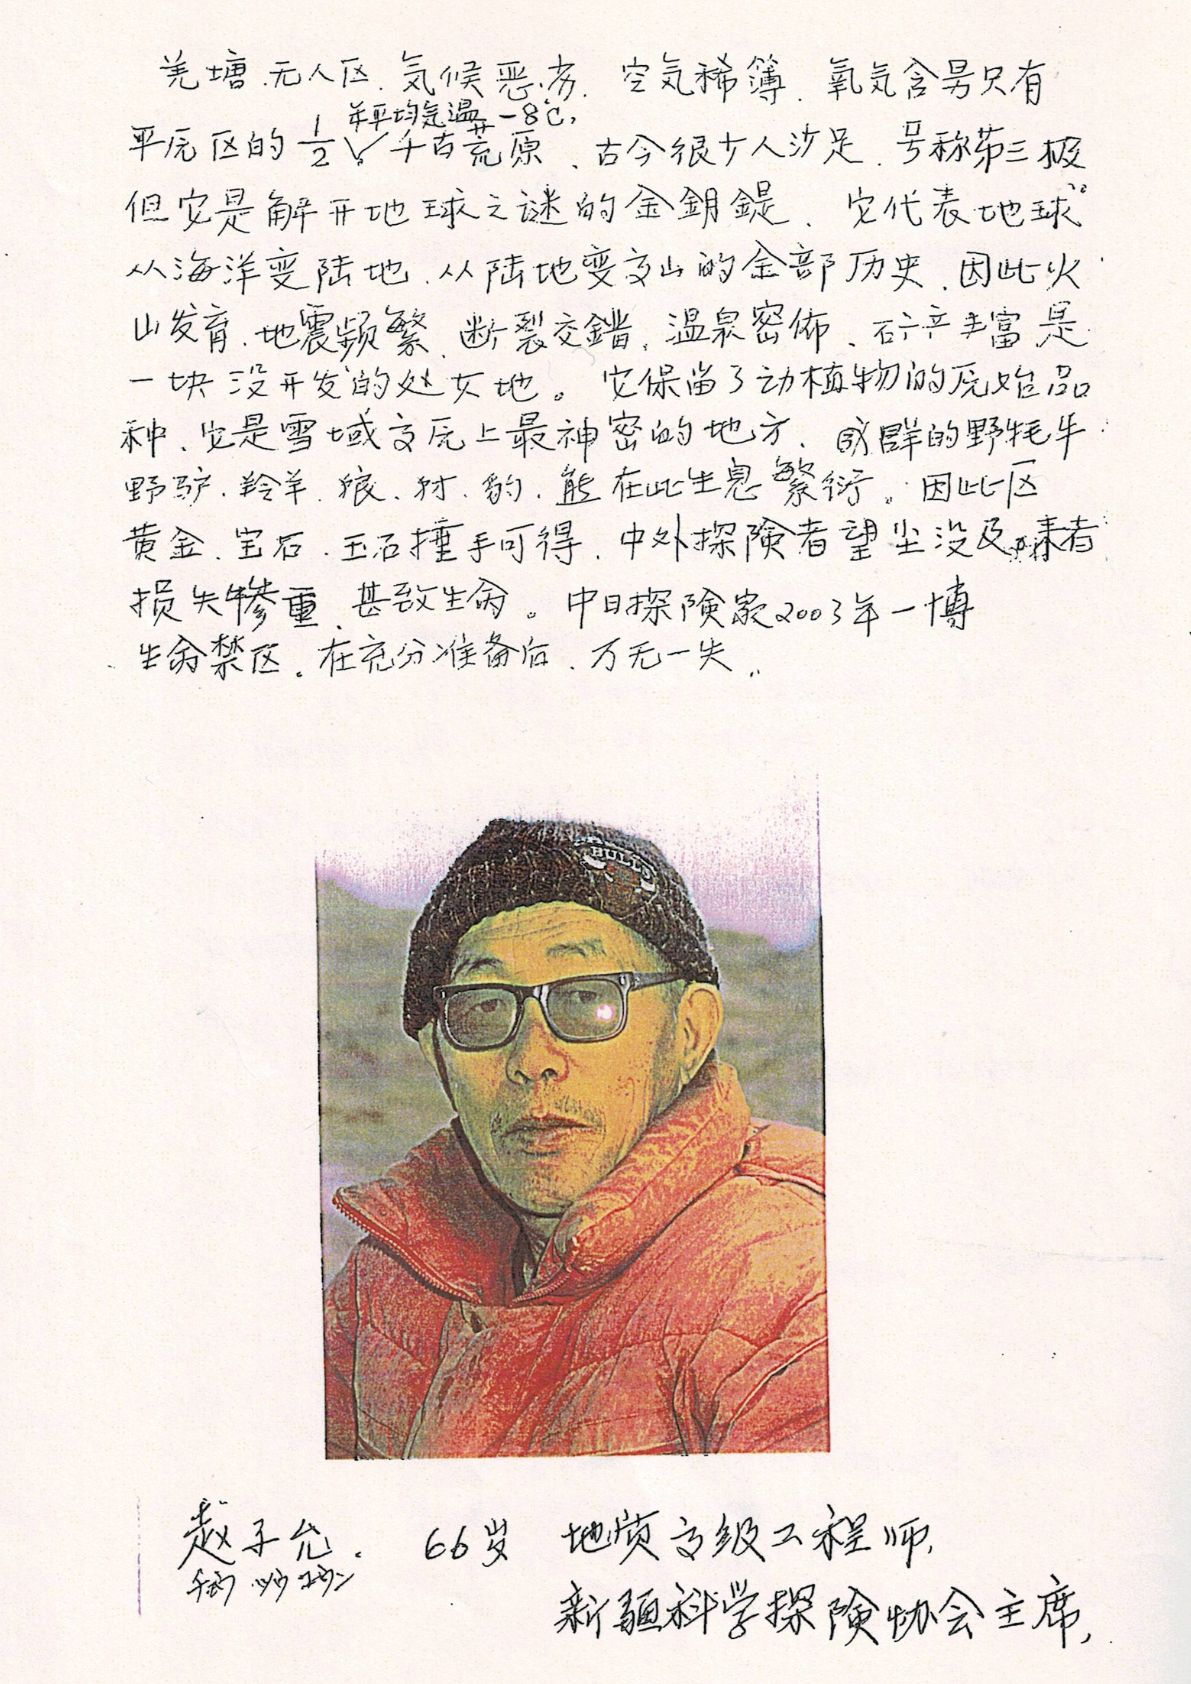 羌塘.无人区.気候恶劣.空気稀簿.氧気含量只有
年平均気温 -8℃,
平原区的 1/2 千古荒原、古今很少人涉足.号称第三极
但它是解开地球之谜的金钥鍉、它代表地球
从海洋变陆地.从陆地变高山的全部历史、因此火
山发育.地震频繁、断裂交錯.温泉密佈、矿产丰富是
一块没开发的处女地。它保留了动植物的原始品
种、它是雪域高原上最神密的地方、成群的野牦牛
野驴.羚羊.狼.豺.豹.熊在此生息繁衍。因此区
黄金、宝石.玉石捶手可得、中外探険者望尘没及.来者
损失惨重、甚致生命。中日探険家2003年一博
生命禁区。在充分准备后、万无一失.
BULLS
赵子允. 66岁 地质高级工程师,
チョウ ツウ ユウン
新疆科学探険协会主席,